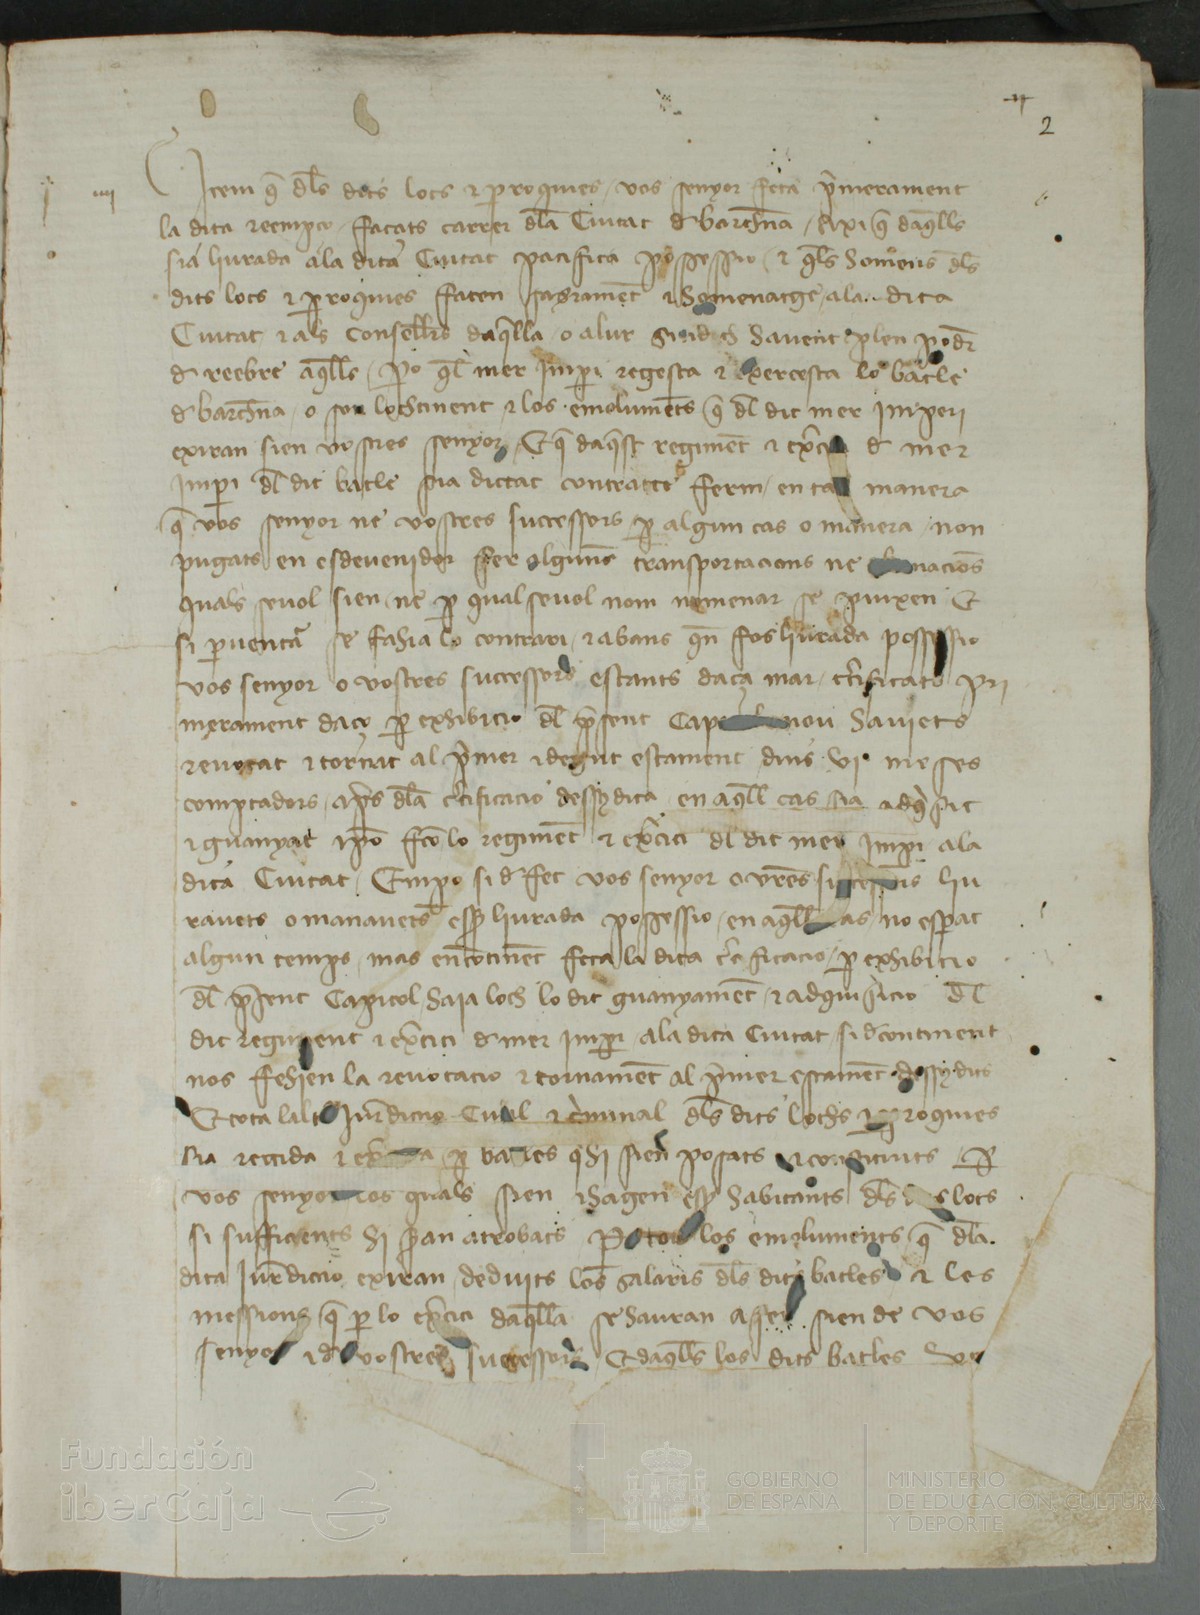 2
iiii
Item q̃ dl̃s dits locs e parroquies / vos senyor fẽta p̃merament
la dita reempço / façats carrer dl̃a Ciutat d barchn̄a / Axi q̃ daq̃lls
sia liurada ala dita Ciutat pacifica possessio / e q̃ls homens dl̃s
dits locs e parroquies facen sagrament e homenatge / ala dita
Ciutat e als consellers daq̃lla / o alur sindich havent plen poder
d reebre aq̃lls / pero q̃l mer Imperi regesca e exercesca lo batle
d barchn̄a / o son lochtinent e los emoluments q̃ dl̃ dit mer Imperi
exiran sien vostres senyor / E q̃ daq̃st regiment e exerci d mer
Imperi dl̃ dit batle sia dictat contracte ferm / en tal manera
q̃ vos senyor ne vostres successors per algun cas o manera / non
pugats en esdevenidor fer alguns transportacions ne nacions
quals sevol sien / ne per qual sevol nom nomenar se puixen E
si perventura se fahia lo contrari / e abans q̃n fos liurada possessio
vos senyor o vostres successors estants daça mar / certificats pri
merament daço per exhibicio dl̃ present Cap nou haviets
revocat e tornat al p̃mer e degut estament dins VI meses
comptadors / apres dl̃a certificacio dessus dita / en aq̃ll cas sia adq̃sit
e guanyat ipso facto lo regiment e exercici dl dit mer Imperi ala
dita Ciutat / Empero si d fet vos senyor o vr̃es successors liu
ravets o manavets esser liurada possessio / en aq̃ll cas / no esperat
algun temps / mas encontinent feta la dita certificacio / per exhibicio
dl̃ present Capitol / haia loch lo dit guanyament / e adquisicio dl̃
dit regiment e exercici d mer Imperi ala dita Ciutat / si d continent
nos fehien la revocacio e tornament al p̃mer estament dessus dits
E tota lalta Jurdiccio Civil e criminal dl̃s dits lochs e parroquies
sia regida e per batles q hi sien posats e constituits Per
vos senyor los quals sien e hagen esser habitants dl̃s dits locs
si sufficients hi seran atrobats Pero tots los emoluments q̃ dl̃a
dita Jurdiccio exiran / deduits los salaris dl̃s dits batles e les
messions q̃ per lo exercici daq̃lla se hauran afer sien de vos
senyor e d vostres successors / E daq̃lls los dits batles vo
Fundación
iberCaja
GOBIERNO
DE ESPAÑA
MINISTERIO
DE EDUCACIÓN, CULTURA
Y DEPORTE